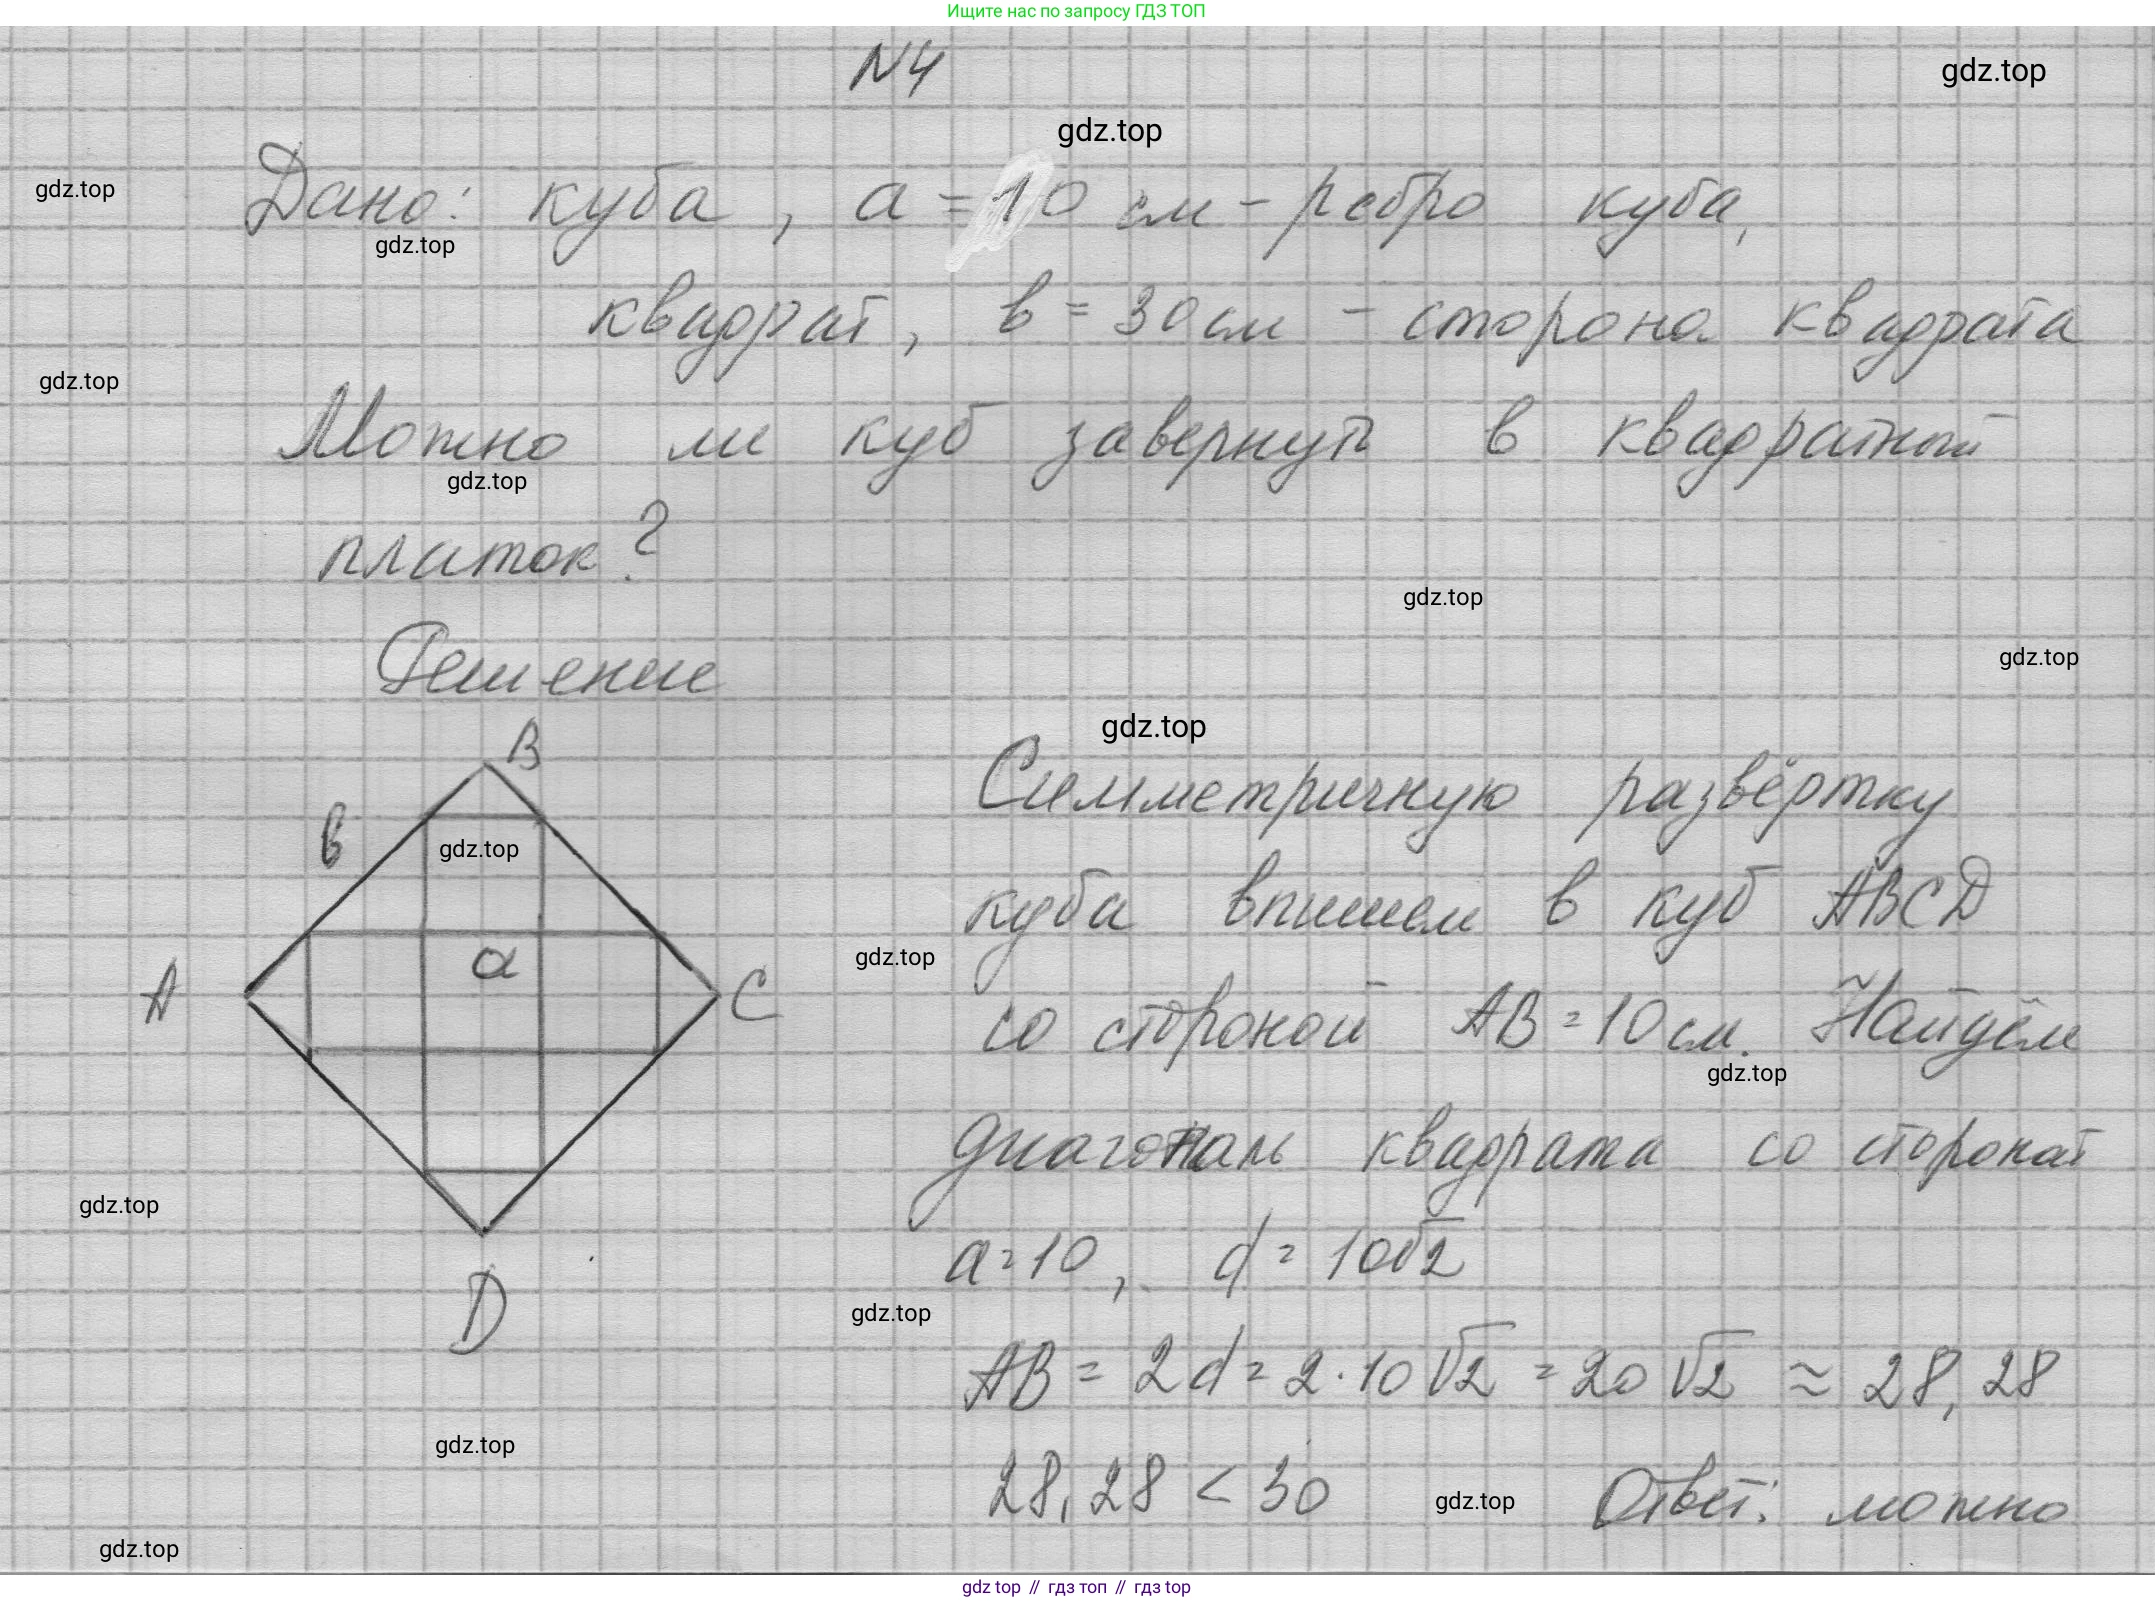 Ищите нас по запросу ГДЗ ТОП
N4
gdz.top
gdz.top
Дано: куба, a = 10 см - ребро куба,
gdz.top
gdz.top
квадрат, в = 30 см - сторона квадрата
gdz.top
Можно ли куб завернуть в квадратный
gdz.top
платок?
gdz.top
Решение
gdz.top
gdz.top
B
в
Симметричную развёртку
gdz.top
куба впишем в куб ABCD
a
gdz.top
A
C
со стороной AB = 10 см. Найдём
gdz.top
диагональ квадрата со стороной
gdz.top
a = 10, d = 10√2
D
gdz.top
AB = 2d = 2 · 10√2 = 20√2 ≈ 28,28
gdz.top
28,28 < 30
gdz.top
Ответ: можно
gdz.top
gdz top // гдз топ // gdz top